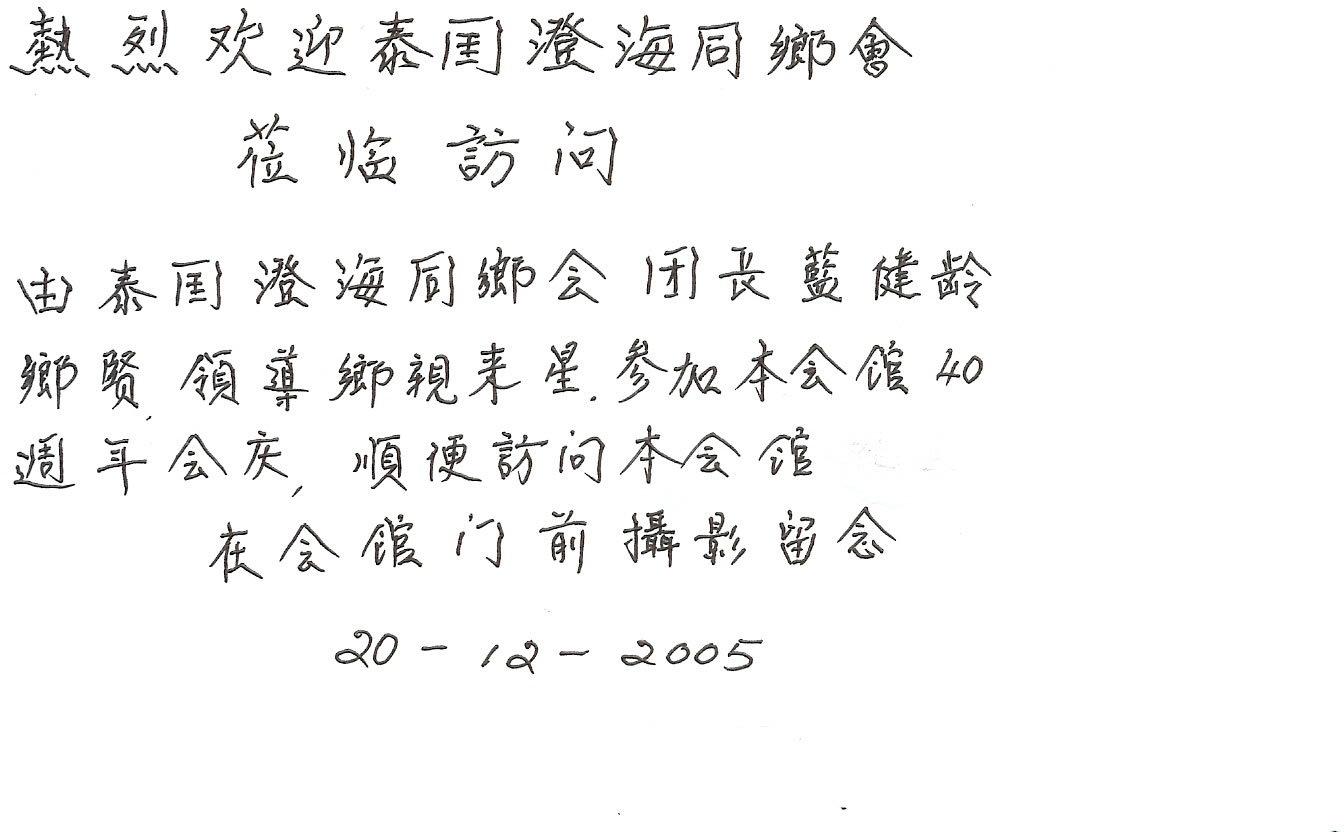 熱烈欢迎泰国澄海同鄉會
莅临訪问
由泰国澄海同鄉会团长藍健龄
鄉贤,領導鄉親来星.参加本会馆40
週年会庆,順便訪问本会馆
在会馆门前攝影留念
20-12-2005